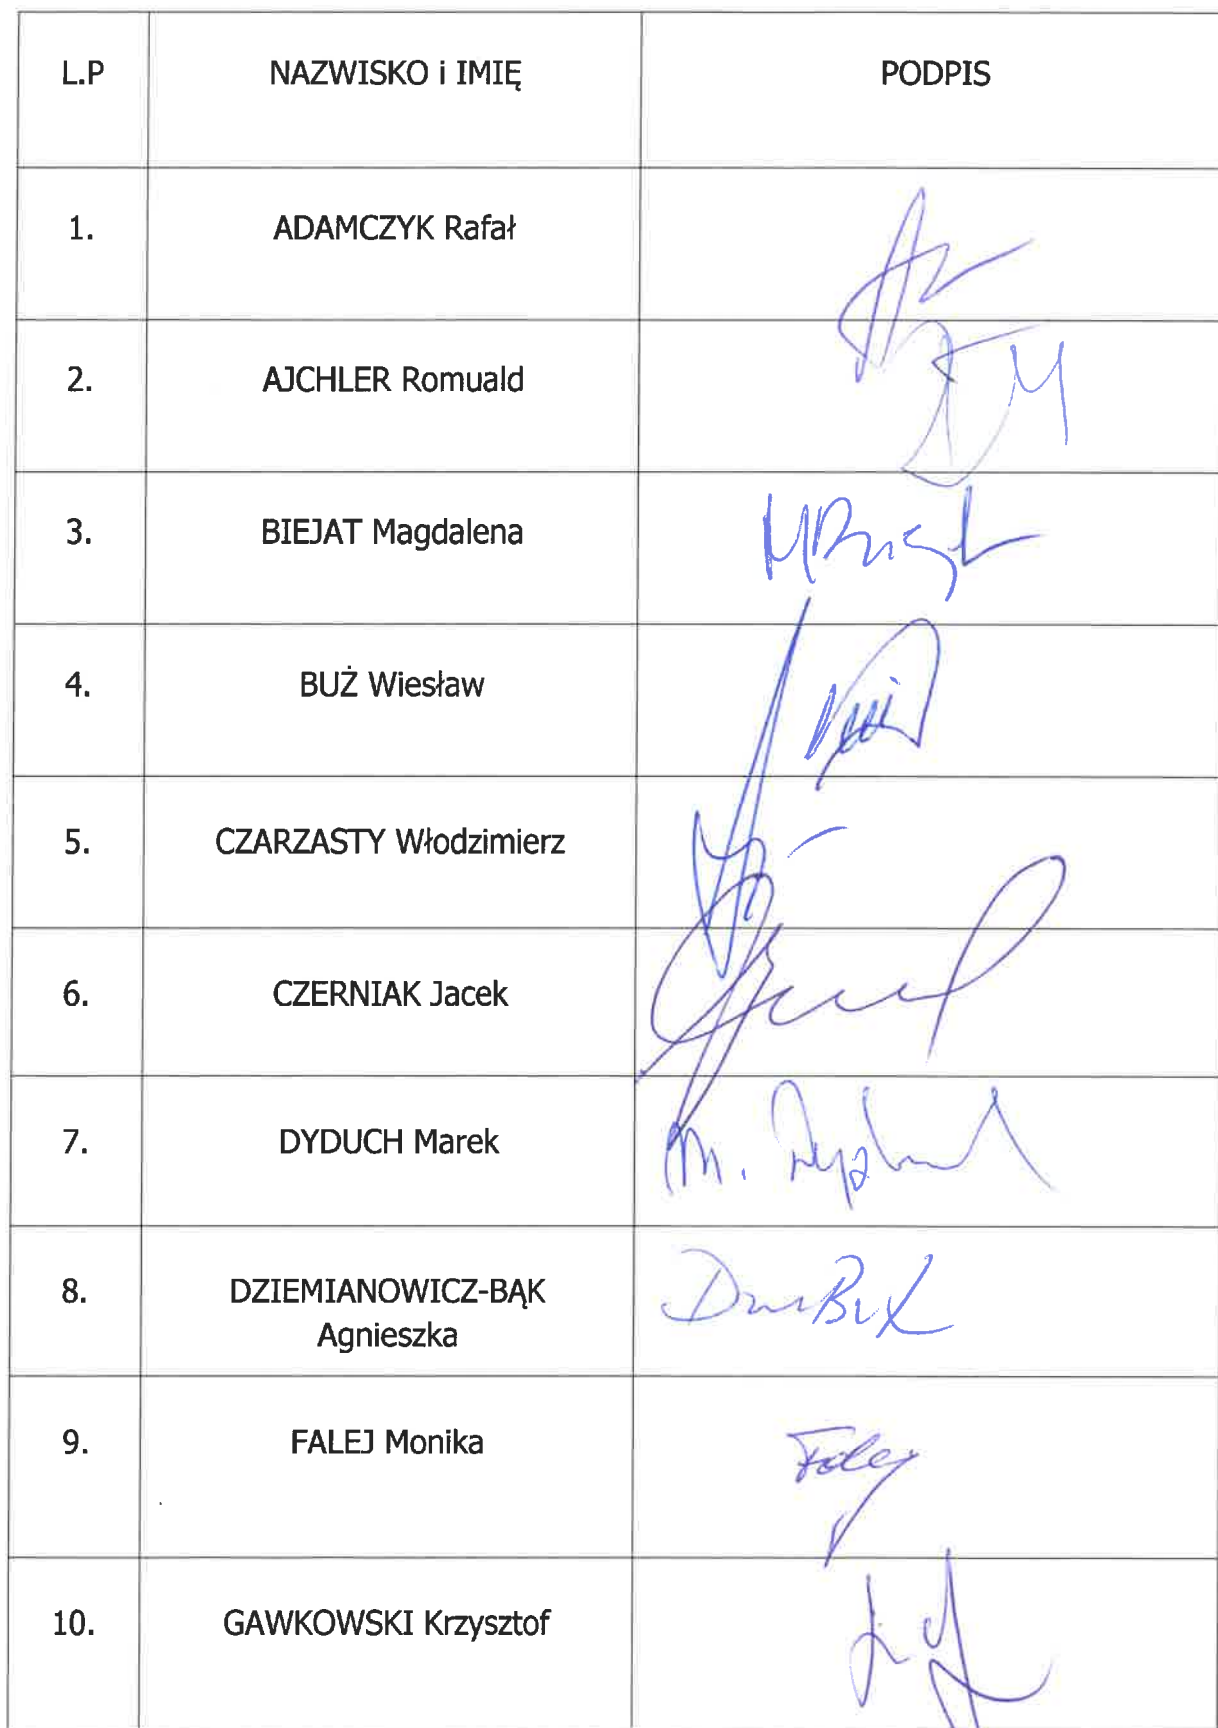 L.P NAZWISKO i IMIĘ PODPIS
1. ADAMCZYK Rafał
2. AJCHLER Romuald
3. BIEJAT Magdalena
4. BUŻ Wiesław
5. CZARZASTY Włodzimierz
6. CZERNIAK Jacek
7. DYDUCH Marek
8. DZIEMIANOWICZ-BĄK
Agnieszka
9. FALEJ Monika Falej
10. GAWKOWSKI Krzysztof